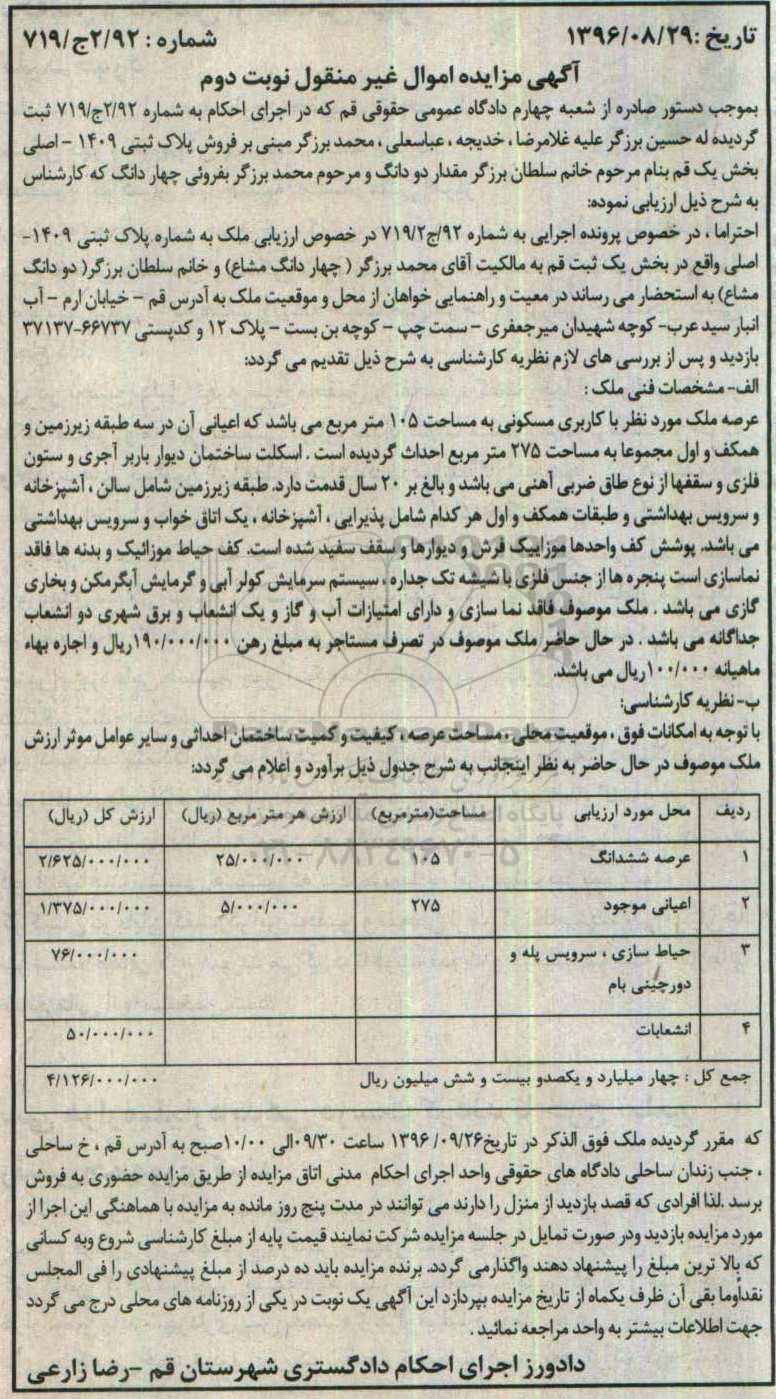 تاریخ :۱۳۹۶/۰۸/۲۹
شماره : ۲/۹۲ج/۷۱۹
آگهی مزایده اموال غیر منقول نوبت دوم
بموجب دستور صادره از شعبه چهارم دادگاه عمومی حقوقی قم که در اجرای احکام به شماره ۲/۹۲ج/۷۱۹ ثبت
گردیده له حسین برزگر علیه غلامرضا ، خدیجه ، عباسعلی ، محمد برزگر مبنی بر فروش پلاک ثبتی ۱۴۰۹ – اصلی
بخش یک قم بنام مرحوم خانم سلطان برزگر مقدار دو دانگ و مرحوم محمد برزگر بفروئی چهار دانگ که کارشناس
به شرح ذیل ارزیابی نموده:
احتراما ، در خصوص پرونده اجرایی به شماره ۹۲/ج۷۱۹/۲ در خصوص ارزیابی ملک به شماره پلاک ثبتی ۱۴۰۹-
اصلی واقع در بخش یک ثبت قم به مالکیت آقای محمد برزگر ( چهار دانگ مشاع) و خانم سلطان برزگر( دو دانگ
مشاع) به استحضار می رساند در معیت و راهنمایی خواهان از محل و موقعیت ملک به آدرس قم – خیابان ارم – آب
انبار سید عرب- کوچه شهیدان میرجعفری – سمت چپ – کوچه بن بست – پلاک ۱۲ و کدپستی ۶۶۷۳۷-۳۷۱۳۷
بازدید و پس از بررسی های لازم نظریه کارشناسی به شرح ذیل تقدیم می گردد:
الف- مشخصات فنی ملک :
عرصه ملک مورد نظر با کاربری مسکونی به مساحت ۱۰۵ متر مربع می باشد که اعیانی آن در سه طبقه زیرزمین و
همکف و اول مجموعا به مساحت ۲۷۵ متر مربع احداث گردیده است . اسکلت ساختمان دیوار باربر آجری و ستون
فلزی و سقفها از نوع طاق ضربی آهنی می باشد و بالغ بر ۲۰ سال قدمت دارد. طبقه زیرزمین شامل سالن ، آشپزخانه
و سرویس بهداشتی و طبقات همکف و اول هر کدام شامل پذیرایی ، آشپزخانه ، یک اتاق خواب و سرویس بهداشتی
می باشد. پوشش کف واحدها موزاییک فرش و دیوارها و سقف سفید شده است. کف حیاط موزائیک و بدنه ها فاقد
نماسازی است پنجره ها از جنس فلزی با شیشه تک جداره ، سیستم سرمایش کولر آبی و گرمایش آبگرمکن و بخاری
گازی می باشد . ملک موصوف فاقد نما سازی و دارای امتیازات آب و گاز و یک انشعاب و برق شهری دو انشعاب
جداگانه می باشد . در حال حاضر ملک موصوف در تصرف مستاجر به مبلغ رهن ۱۹۰/۰۰۰/۰۰۰ریال و اجاره بهاء
ماهیانه ۱۰۰/۰۰۰ریال می باشد.
ب- نظریه کارشناسی:
با توجه به امکانات فوق ، موقعیت محلی ، مساحت عرصه ، کیفیت و کمیت ساختمان احداثی و سایر عوامل موثر ارزش
ملک موصوف در حال حاضر به نظر اینجانب به شرح جدول ذیل برآورد و اعلام می گردد:
ردیف محل مورد ارزیابی مساحت(مترمربع) ارزش هر متر مربع (ریال) ارزش کل (ریال)
۱ عرصه ششدانگ ۱۰۵ ۲۵/۰۰۰/۰۰۰ ۲/۶۲۵/۰۰۰/۰۰۰
۲ اعیانی موجود ۲۷۵ ۵/۰۰۰/۰۰۰ ۱/۳۷۵/۰۰۰/۰۰۰
۳ حیاط سازی ، سرویس پله و ۷۶/۰۰۰/۰۰۰
دورچینی بام
۴ انشعابات ۵۰/۰۰۰/۰۰۰
جمع کل : چهار میلیارد و یکصدو بیست و شش میلیون ریال ۴/۱۲۶/۰۰۰/۰۰۰
که مقرر گردیده ملک فوق الذکر در تاریخ۰۹/۲۶/ ۱۳۹۶ ساعت ۰۹/۳۰الی ۱۰/۰۰صبح به آدرس قم ، خ ساحلی
، جنب زندان ساحلی دادگاه های حقوقی واحد اجرای احکام مدنی اتاق مزایده از طریق مزایده حضوری به فروش
برسد .لذا افرادی که قصد بازدید از منزل را دارند می توانند در مدت پنج روز مانده به مزایده با هماهنگی این اجرا از
مورد مزایده بازدید ودر صورت تمایل در جلسه مزایده شرکت نمایند قیمت پایه از مبلغ کارشناسی شروع وبه کسانی
که بالا ترین مبلغ را پیشنهاد دهند واگذارمی گردد. برنده مزایده باید ده درصد از مبلغ پیشنهادی را فی المجلس
نقداًوما بقی آن ظرف یکماه از تاریخ مزایده بپردازد این آگهی یک نوبت در یکی از روزنامه های محلی درج می گردد
جهت اطلاعات بیشتر به واحد مراجعه نمائید .
دادورز اجرای احکام دادگستری شهرستان قم –رضا زارعی